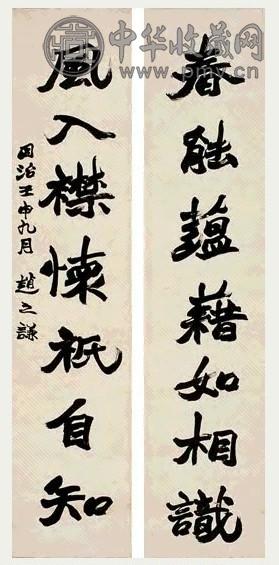 中华收藏网
www.pmv.cn
春能蘊藉如相識
風入襟懷祇自知
同治壬申九月 趙之謙